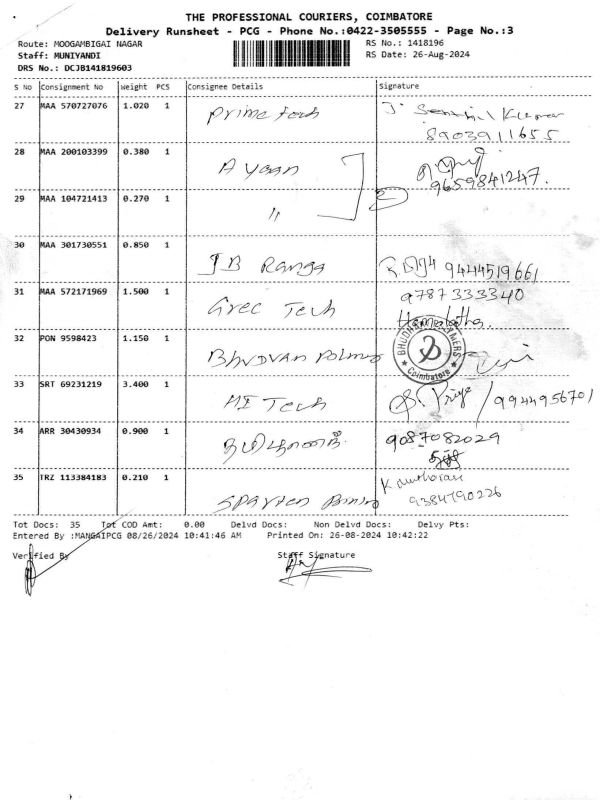 THE PROFESSIONAL COURIERS, COIMBATORE
Delivery Runsheet - PCG - Phone No.:0422-3505555 - Page No.:3
Route: MOOGAMBIGAI NAGAR RS No.: 1418196
Staff: MUNIYANDI RS Date: 26-Aug-2024
DRS No.: DCJB141819603
S No Consignment No Weight PCS Consignee Details Signature
27 MAA 570727076 1.020 1 Prime Tech J. Senthil Kumar
8903911655
28 MAA 200103399 0.380 1 Ayaan
9659841247.
29 MAA 104721413 0.270 1 "
30 MAA 301730551 0.850 1 JB Ranga 9444519661
31 MAA 572171969 1.500 1 Grec Tech 9787333340
Hemalatha.
32 PON 9598423 1.150 1 BHUDVAN Polmy
BHUDHAN POLYMERS
Coimbatore
33 SRT 69231219 3.400 1 HI Tech S. Priya / 9944956701
34 ARR 30430934 0.900 1 9087082029
35 TRZ 113384183 0.210 1 Sparten K
9384790226
Tot Docs: 35 Tot COD Amt: 0.00 Delvd Docs: Non Delvd Docs: Delvy Pts:
Entered By :MANGAIPCG 08/26/2024 10:41:46 AM Printed On: 26-08-2024 10:42:22
Verified By Staff Signature